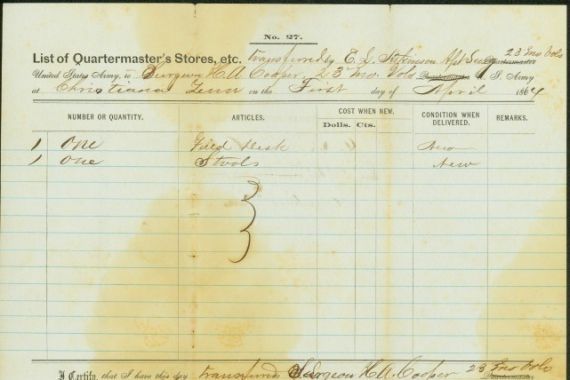 No. 27.
List of Quartermaster's Stores, etc. transferred by E. L. Apt Surg 23 Mo Vols Quartermaster
United States Army, to Surgeon H. A. Cooper, 23 Mo. Vols Quartermaster U. S. Army
at Christiana Tenn on the First day of April 1864
NUMBER OR QUANTITY. ARTICLES. COST WHEN NEW. CONDITION WHEN DELIVERED. REMARKS.
Dolls. Cts.
1 One Field Desk New
1 One Stools New
I Certify, that I have this day transferred Surgeon H. A. Cooper 23 Mo Vols